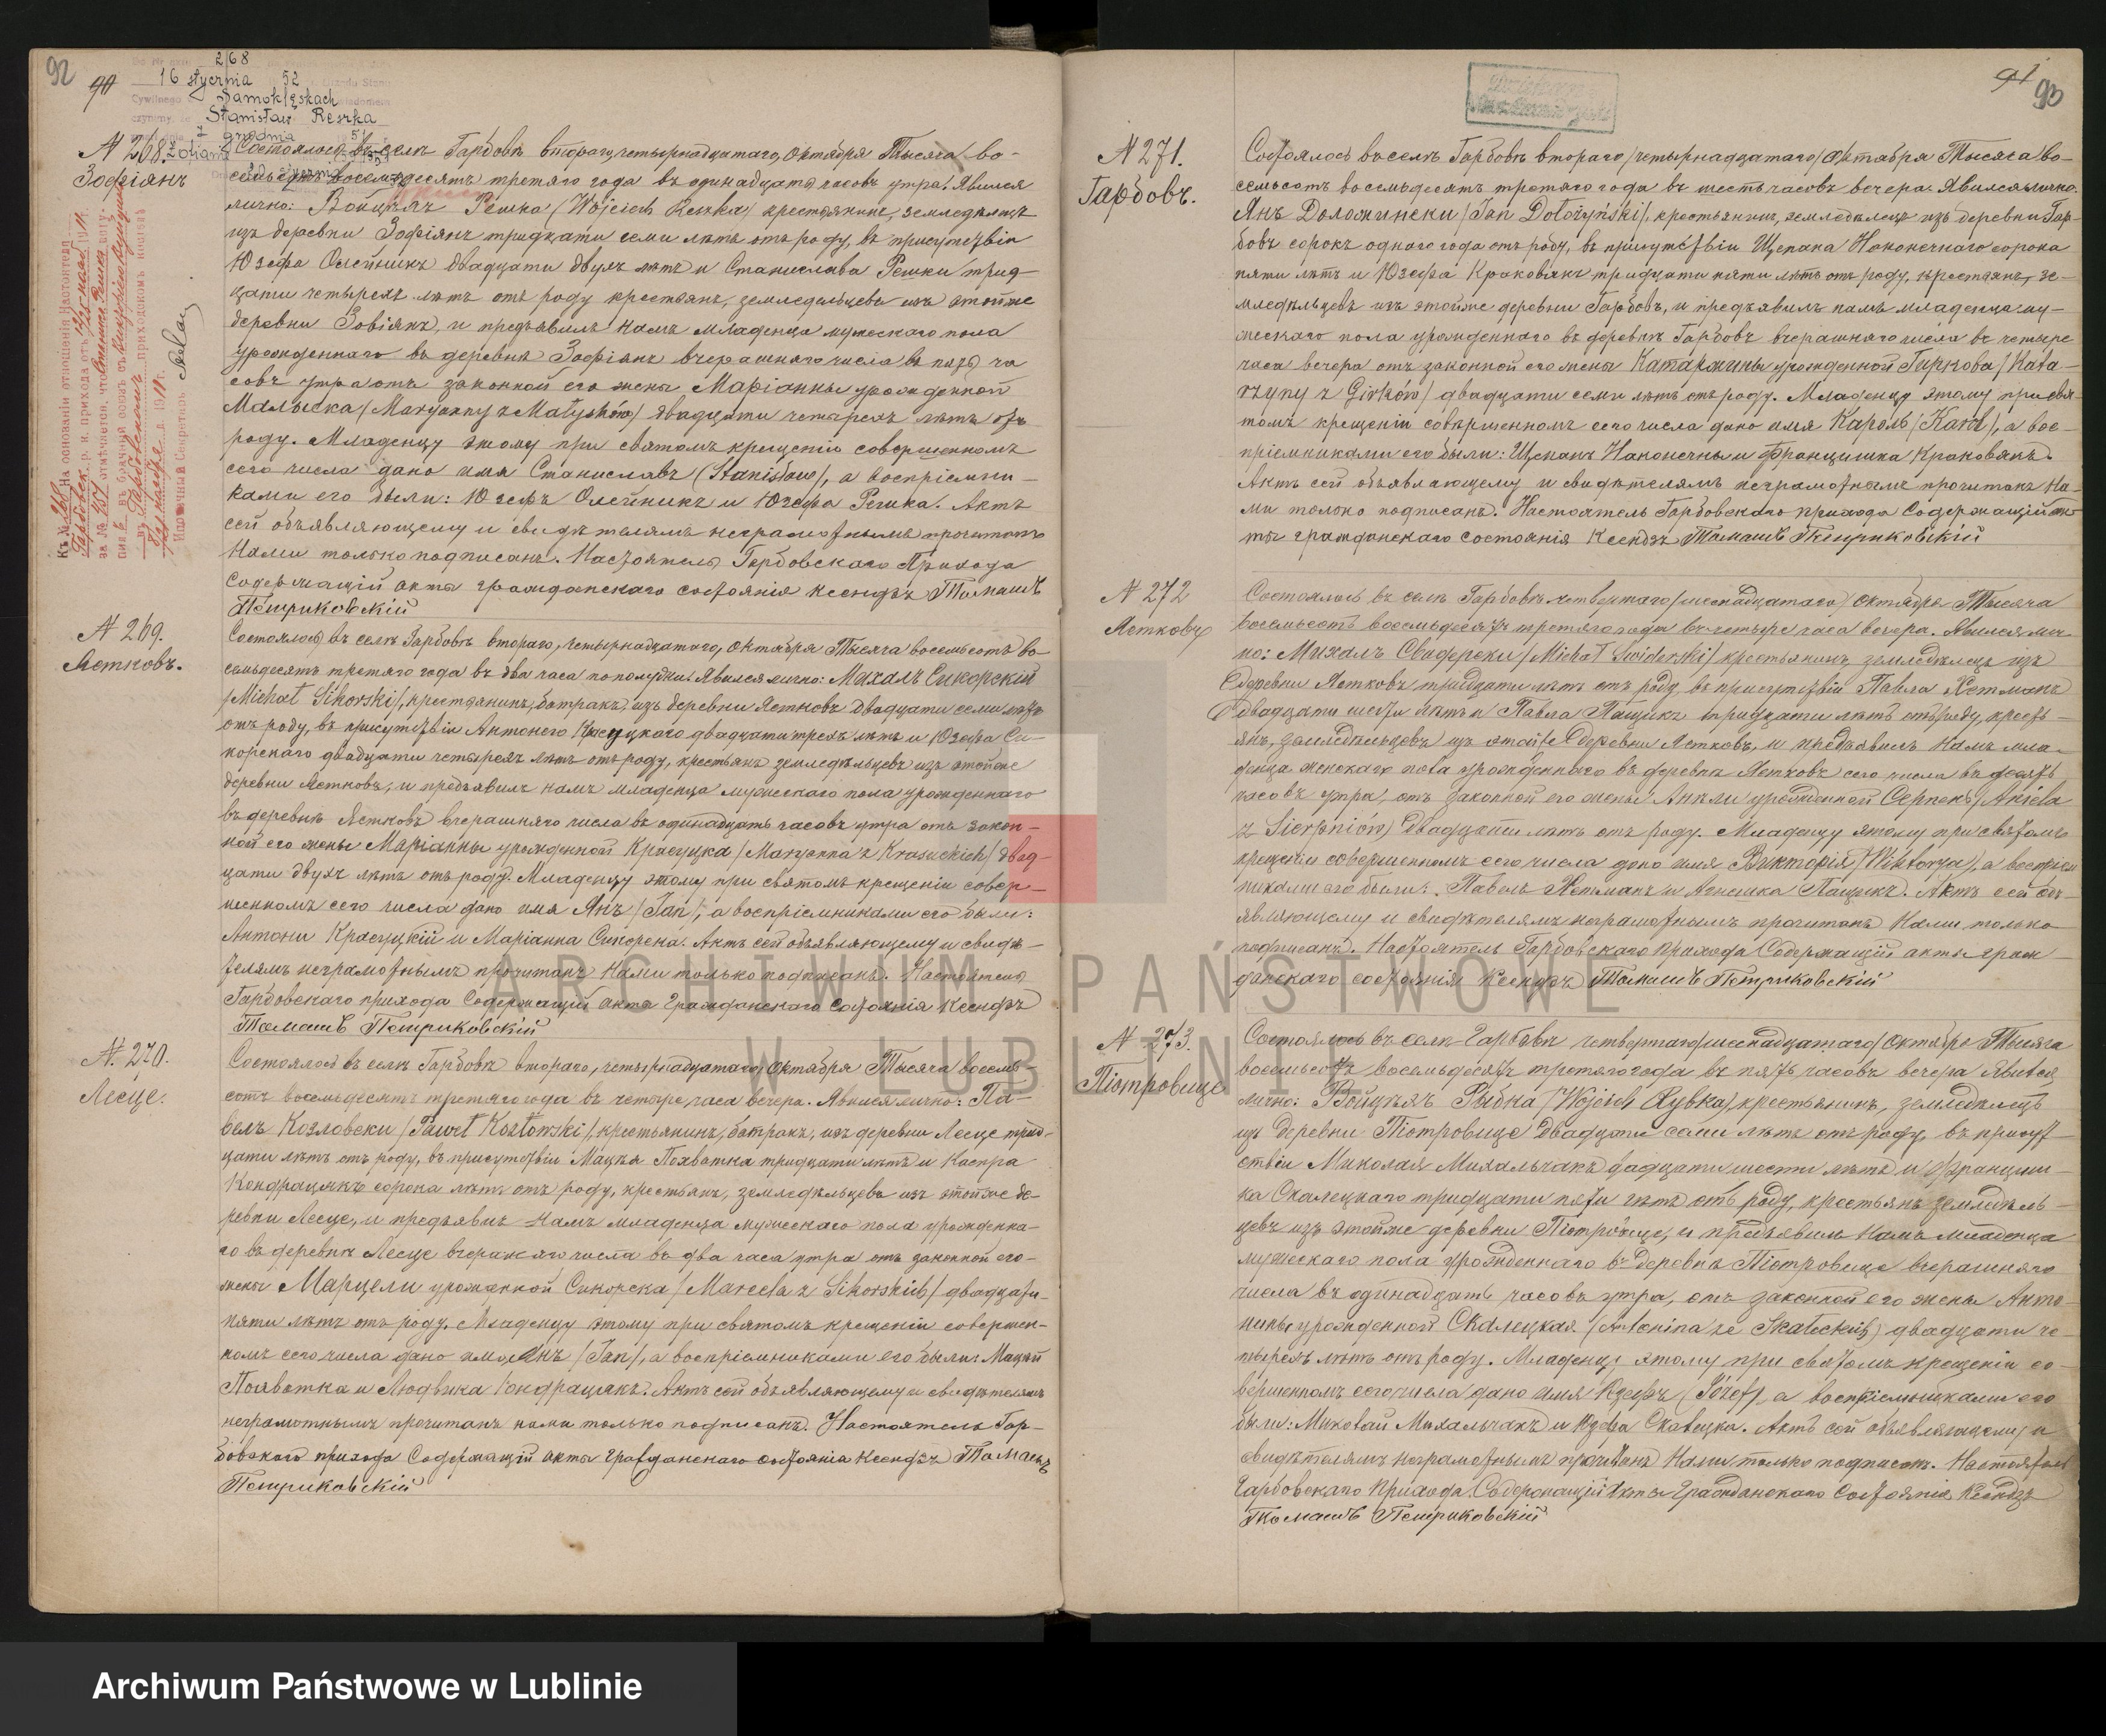 92
90
268
16 stycznia 52
Samoklęskach
Stanisław Reszka
7 grudnia 51
N 268.
Зофіянъ
Состоялось въ селѣ Гарбовѣ втораго, четырнадцатаго, Октября Тысяча во-
семьсотъ восемьдесятъ третяго года въ одинадцать часовъ утра. Явился
лично: Войцѣхъ Решка /Wojciech Reszka/ крестьянинъ, земледѣлецъ
изъ деревни Зофіянъ тридцати семи лѣтъ отъ роду, въ присутствіи
Юзефа Олейникъ двадцати двухъ лѣтъ и Станислава Решки трид-
цати четырехъ лѣтъ отъ роду крестьянъ, земледѣльцевъ изъ этойже
деревни Зовіянъ, и предъявилъ намъ младенца мужескаго пола
урожденнаго въ деревнѣ Зофіянъ вчерашняго числа въ пять ча
совъ утра отъ законной его жены Маріанны урожденной
Малыска /Maryanny z Małysków/ двадцати четырехъ лѣтъ отъ
роду. Младенцу этому при святомъ крещеніи совершенномъ
сего числа дано имя Станиславъ (Stanisław), а воспріемни-
ками его были: Юзефъ Олейникъ и Юзефа Решка. Актъ
сей объявляющему и свидѣтелямъ неграмотнымъ прочитанъ
Нами только подписанъ. Настоятель Гарбовскаго Прихода
Содержащій акты гражданскаго состоянія Ксендзъ Томашъ
Петриковскій
N 269.
Летковъ.
Состоялось въ селѣ Гарбовѣ втораго, четырнадцатаго, Октября Тысяча восемьсотъ во-
семьдесятъ третяго года въ два часа пополудни. Явился лично: Михалъ Сикорскій
/Michał Sikorski/, крестьянинъ, батракъ, изъ деревни Летковъ двадцати семи лѣтъ
отъ роду, въ присутствіи Антонего Красуцкаго двадцати трехъ лѣтъ и Юзефа Си-
корскаго двадцати четырехъ лѣтъ отъ роду, крестьянъ земледѣльцевъ изъ этойже
деревни Летковъ, и предъявилъ намъ младенца мужескаго пола урожденнаго
въ деревнѣ Летковъ вчерашняго числа въ одинадцать часовъ утра отъ закон-
ной его жены Маріанны урожденной Красуцка /Maryanna z Krasuckich/ двад-
цати двухъ лѣтъ отъ роду. Младенцу этому при святомъ крещеніи совер-
шенномъ сего числа дано имя Янъ /Jan/, а воспріемниками его были:
Антони Красуцкій и Маріанна Сикорска. Актъ сей объявляющему и свидѣ-
телямъ неграмотнымъ прочитанъ Нами только подписанъ. Настоятель
Гарбовскаго прихода Содержащій акты Гражданскаго Состоянія Ксендзъ
Томашъ Петриковскій
N. 270.
Лесце.
Состоялось въ селѣ Гарбовѣ втораго, четырнадцатаго, Октября Тысяча восемь-
сотъ восемьдесятъ третяго года въ четыре часа вечера. Явился лично: Па-
велъ Козловски /Paweł Kozłowski/, крестьянинъ, батракъ, изъ деревни Лесце трид-
цати лѣтъ отъ роду, въ присутствіи Мацѣя Похватка тридцати лѣтъ и Каспра
Кондрацякъ сорока лѣтъ отъ роду, крестьянъ, земледѣльцевъ изъ этойже де-
ревни Лесце, и предъявилъ Намъ младенца мужескаго пола урожденна-
го въ деревнѣ Лесце вчерашняго числа въ два часа утра отъ законной его-
жены Марцели урожденной Сикорска /Marcela z Sikorskich/ двадцати-
пяти лѣтъ отъ роду. Младенцу этому при святомъ крещеніи совершен-
номъ сего числа дано имя Янъ /Jan/, а воспріемниками его были: Мацѣй
Похватка и Людвика Кондрацякъ. Актъ сей объявляющему и свидѣтелямъ
неграмотнымъ прочитанъ нами только подписанъ. Настоятель Гар-
бовскаго прихода Содержащій акты Гражданскаго состоянія Ксендзъ Томашъ
Петриковскій
91
93
N 271.
Гарбовъ.
Состоялось въ селѣ Гарбовѣ втораго /четырнадцатаго/ Октября Тысяча во-
семьсотъ восемьдесятъ третяго года въ шесть часовъ вечера. Явился лично:
Янъ Доложински /Jan Dołożyński/, крестьянинъ, земледѣлецъ изъ деревни Гар-
бовъ сорокъ одного года отъ роду, въ присутствіи Щепана Наконечнаго сорока
пяти лѣтъ и Юзефа Краковякъ тридцати пяти лѣтъ отъ роду, крестьянъ, зе-
мледѣльцевъ изъ этойже деревни Гарбовъ, и предъявилъ намъ младенца му-
жескаго пола урожденнаго въ деревнѣ Гарбовъ вчерашняго числа въ четыре
часа вечера отъ законной его жены Катаржины урожденной Гиркова /Kata-
rzyny z Girków/ двадцати семи лѣтъ отъ роду. Младенцу этому при свя-
томъ крещеніи совершенномъ сего числа дано имя Кароль /Karol/, а вос-
пріемниками его были: Щепанъ Наконечны и Францишка Краковякъ.
Актъ сей объявляющему и свидѣтелямъ неграмотнымъ прочитанъ На-
ми только подписанъ. Настоятель Гарбовскаго прихода Содержащій ак-
ты гражданскаго состоянія Ксендзъ Томашъ Петриковскій
N 272
Летковъ
Состоялось въ селѣ Гарбовѣ четвертаго/шеснадцатаго/ Октября Тысяча
восемьсотъ восемьдесятъ третяго года въ четыре часа вечера. Явился лич-
но: Михалъ Свидерски /Michał Swiderski/ крестьянинъ, земледѣлецъ изъ
деревни Летковъ тридцати лѣтъ отъ роду, въ присутствіи Павла Хетманъ
двадцати шести лѣтъ и Павла Пащикъ тридцати лѣтъ отъ роду, кресть-
янъ, земледѣльцевъ изъ этойже деревни Летковъ, и предъявилъ Намъ мла-
денца женскаго пола урожденнаго въ деревнѣ Летковъ сего числа въ десять
часовъ утра, отъ законной его жены Анѣли урожденной Серпень /Aniela
z Sierpniów/ двадцати лѣтъ отъ роду. Младенцу этому при святомъ
крещеніи совершенномъ сего числа дано имя Викторія /Wiktorya/, а воспріем
никами его были: Павелъ Хетманъ и Агнешка Пащикъ. Актъ сей объ-
являющему и свидѣтелямъ неграмотнымъ прочитанъ Нами только
подписанъ. Настоятель Гарбовскаго прихода Содержащій акты граж-
данскаго состоянія Ксендзъ Томашъ Петриковскій
N 273.
Піотровице
Состоялось въ селѣ Гарбовѣ четвертаго/шеснадцатаго/ Октября Тысяча
восемьсотъ восемьдесятъ третяго года въ пять часовъ вечера Явился
лично: Войцѣхъ Рыбка /Wojciech Rybka/, крестьянинъ, земледѣлецъ
изъ деревни Піотровице двадцати семи лѣтъ отъ роду, въ присут-
ствіи Миколая Михальчакъ двадцати шести лѣтъ и Францишка
ка Скалецкаго тридцати пяти лѣтъ отъ роду, крестьянъ земледѣль-
цевъ изъ этойже деревни Піотровице, и предъявилъ Намъ младенца
мужескаго пола урожденнаго въ деревнѣ Піотровице вчерашняго
числа въ одинадцать часовъ утра, отъ законной его жены Анто-
нины урожденной Скалецкая (Antonina ze Skałeckich) двадцати че-
тырехъ лѣтъ отъ роду. Младенцу этому при святомъ крещеніи со-
вершенномъ сего числа дано имя Юзефъ (Józef), а воспріемниками его
были: Миколай Михальчакъ и Юзефа Скалецка. Актъ сей объявляющему и
свидѣтелямъ неграмотнымъ прочитанъ Нами только подписанъ. Настоятель
Гарбовскаго Прихода Содержащій Акты Гражданскаго Состоянія Ксендзъ
Томашъ Петриковскій
ARCHIWUM PAŃSTWOWE
W LUBLINIE
Archiwum Państwowe w Lublinie